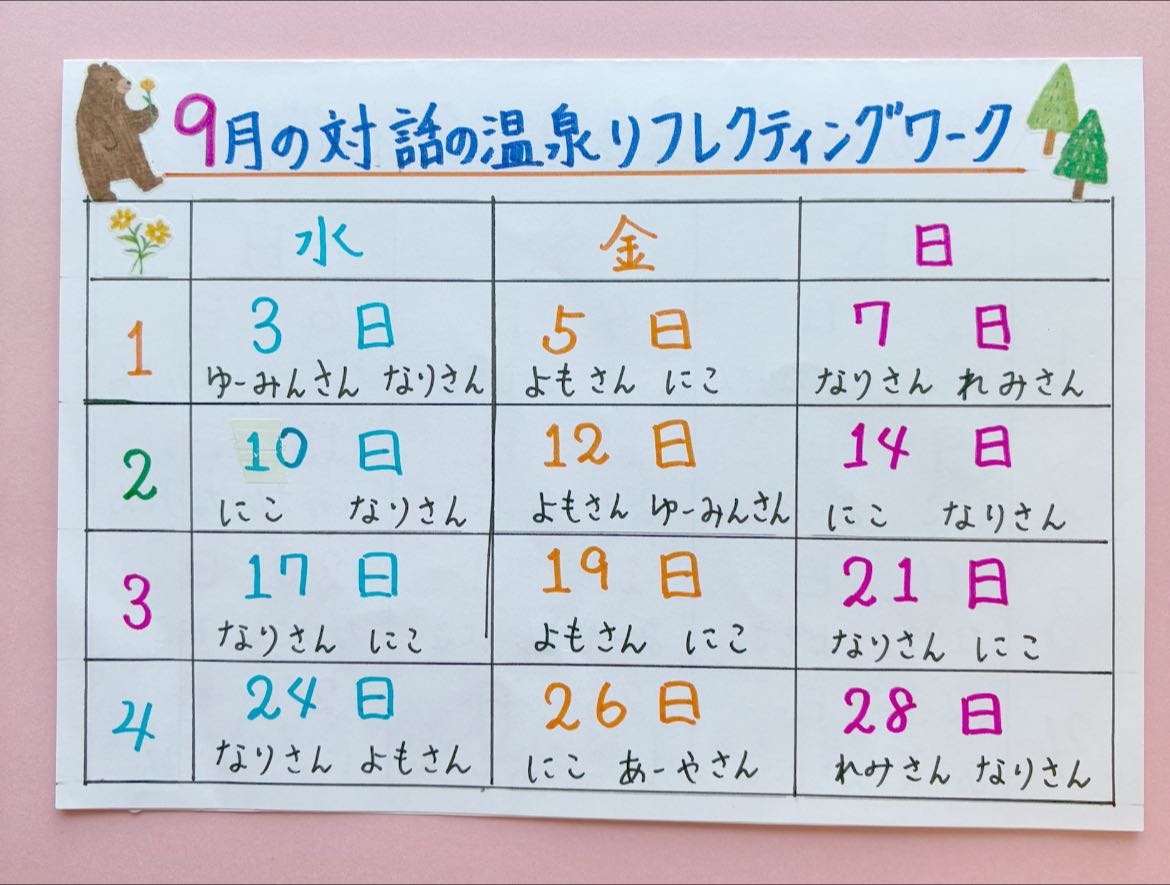 9月の対話の温泉リフレクティングワーク
水 金 日
1 3日 5日 7日
ゆーみんさん なりさん よもさん にこ なりさん れみさん
2 10日 12日 14日
にこ なりさん よもさん ゆーみんさん にこ なりさん
3 17日 19日 21日
なりさん にこ よもさん にこ なりさん にこ
4 24日 26日 28日
なりさん よもさん にこ あーやさん れみさん なりさん